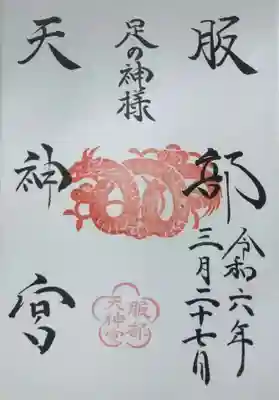 服部
令和六年
三月二十七日
足の神様
天神宮
服部
天神宮